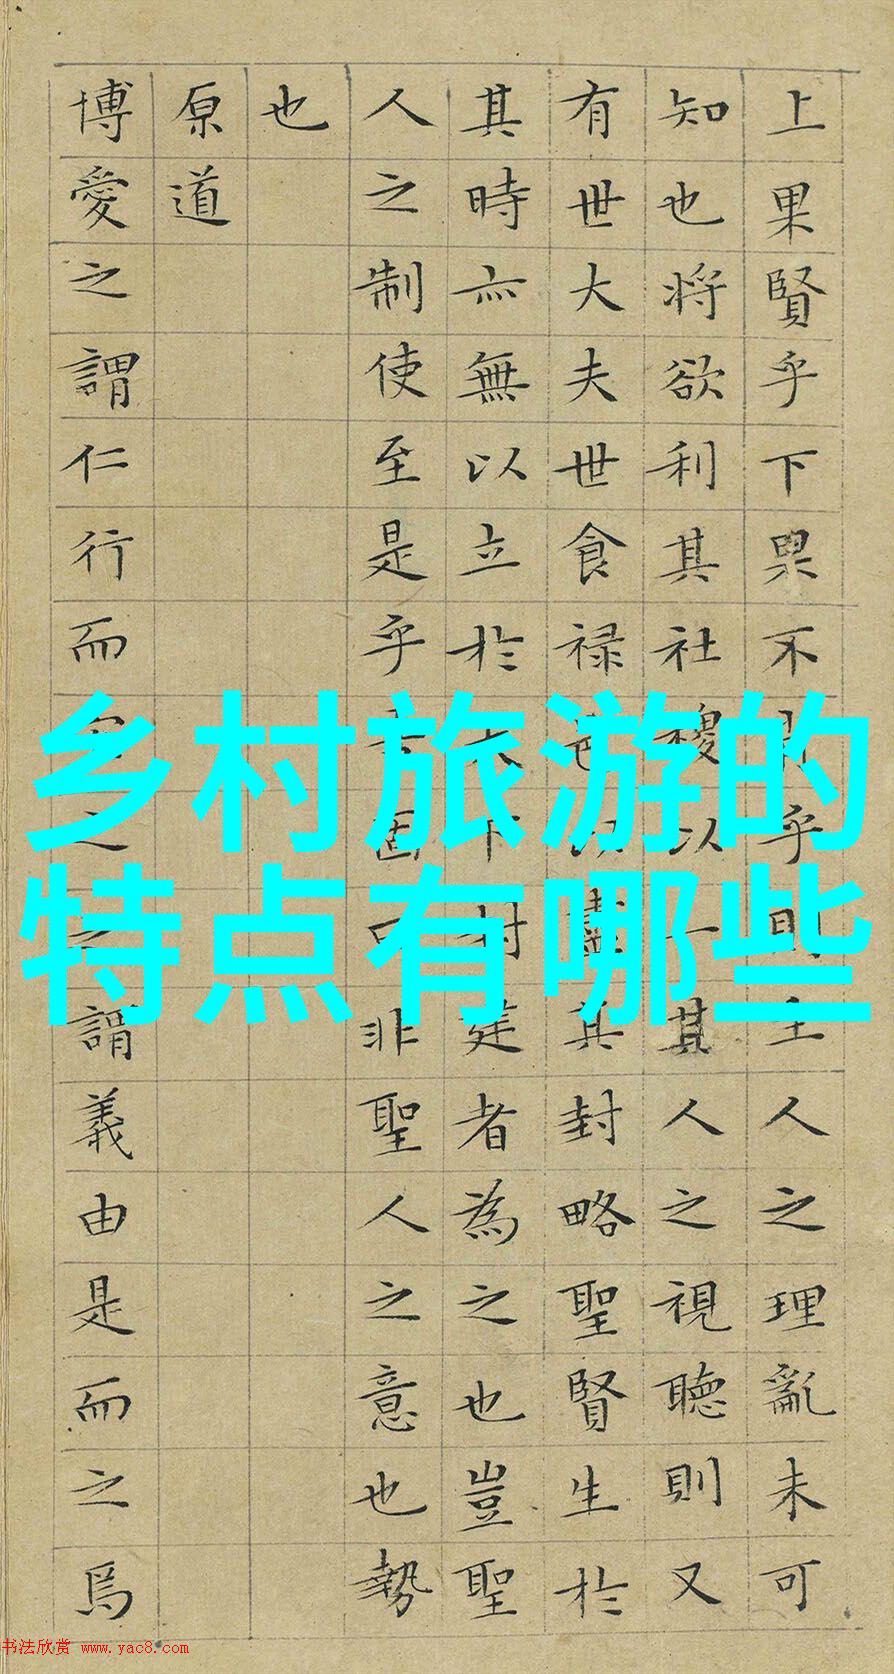 上果賢乎下果不肖乎則生人之理亂未可
知也将欲利其社稷以一其人之視聴則又
有世大夫世食禄邑以盡其封略聖賢生於
其時亦無以立於天下封建者為之也豈聖
人之制使至是乎吾固曰非聖人之意也勢
也
原道
博愛之謂仁行而宜之之謂義由是而之焉
乡村旅游的
特点有哪些
书法欣赏 www.yac8.com